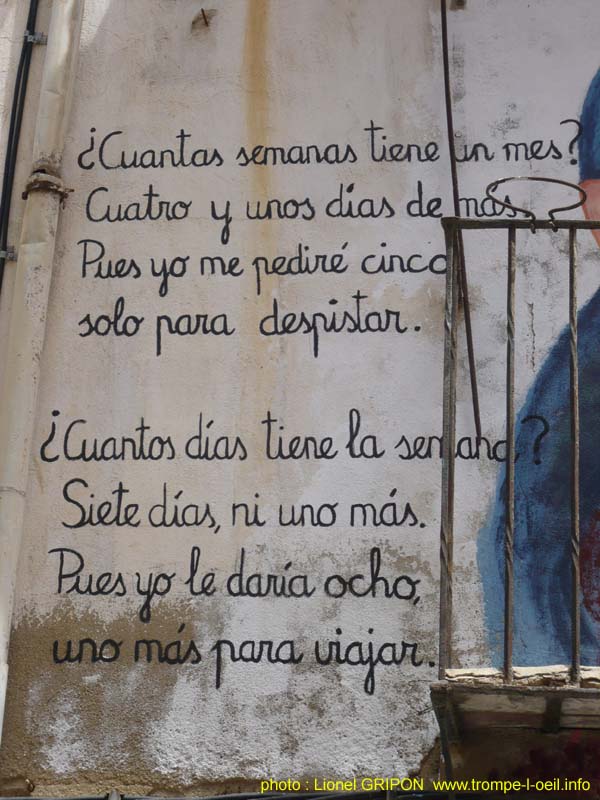 ¿Cuantas semanas tiene un mes?
Cuatro y unos días de más.
Pues yo me pediré cinco
solo para despistar.
¿Cuantos días tiene la semana,?
Siete días, ni uno más.
Pues yo le daría ocho,
uno más para viajar.
photo : Lionel GRIPON www.trompe-l-oeil.info